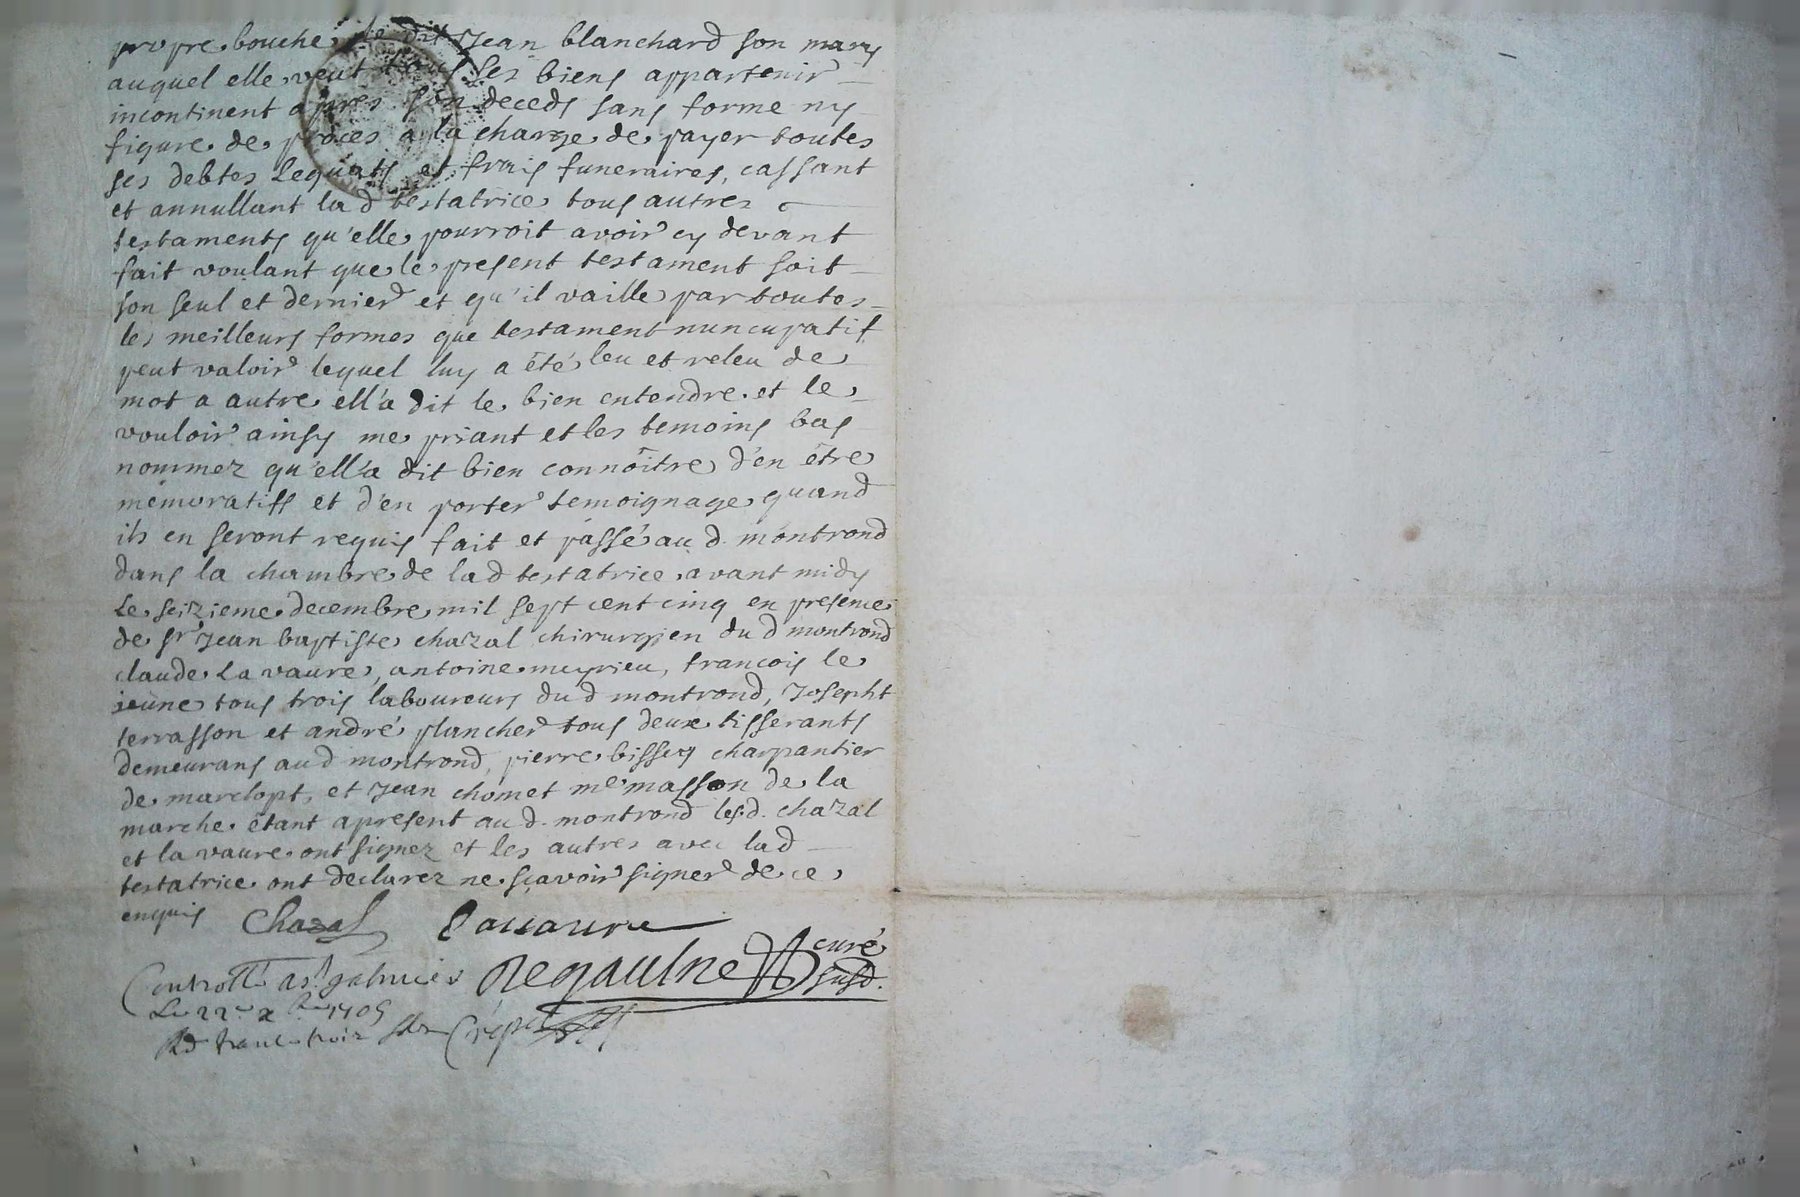 propre bouche, le dit Jean blanchard son mary
auquel elle veut tous ses biens appartenir
incontinent apres son deceds sans forme ny
figure de proces a la charge de payer toutes
ses debtes Lequats et frais funeraires, cassant
et annullant la d testatrice tous autres
testaments qu'elle pourroit avoir cy devant
fait voulant que le present testament soit
son seul et dernier et qu'il vaille par toutes
les meilleurs formes que testament nuncupatif
peut valoir lequel luy a été leu et releu de
mot a autre ell'a dit le bien entendre et le
vouloir ainsy me priant et les temoins bas
nommez qu'ell'a dit bien connoître d'en être
mémoratifs et d'en porter temoignage quand
ils en seront requis fait et passé au d. montrond
dans la chambre de la d testatrice avant midy
Le seizieme decembre mil sept cent cinq en presence
de Sr Jean baptiste chazal chirurgien du d montrond
claude La vaure, antoine meyrieu, francois le
jeune tous trois laboureurs du d montrond, Josepht
terrasson et andré plancher tous deux tisserants
demeurans au d montrond, pierre bissey charpantier
de marclopt, et Jean chomet me masson de la
marche étant apresent au d. montrond les d. chazal
et la vaure ont signez et les autres avec la d
testatrice ont declarez ne sçavoir signer de ce
enquis Chazal Lavaure
Regaulne curé
susd.
Controllé a St galmier
Le 22e xbre 1705
Rd